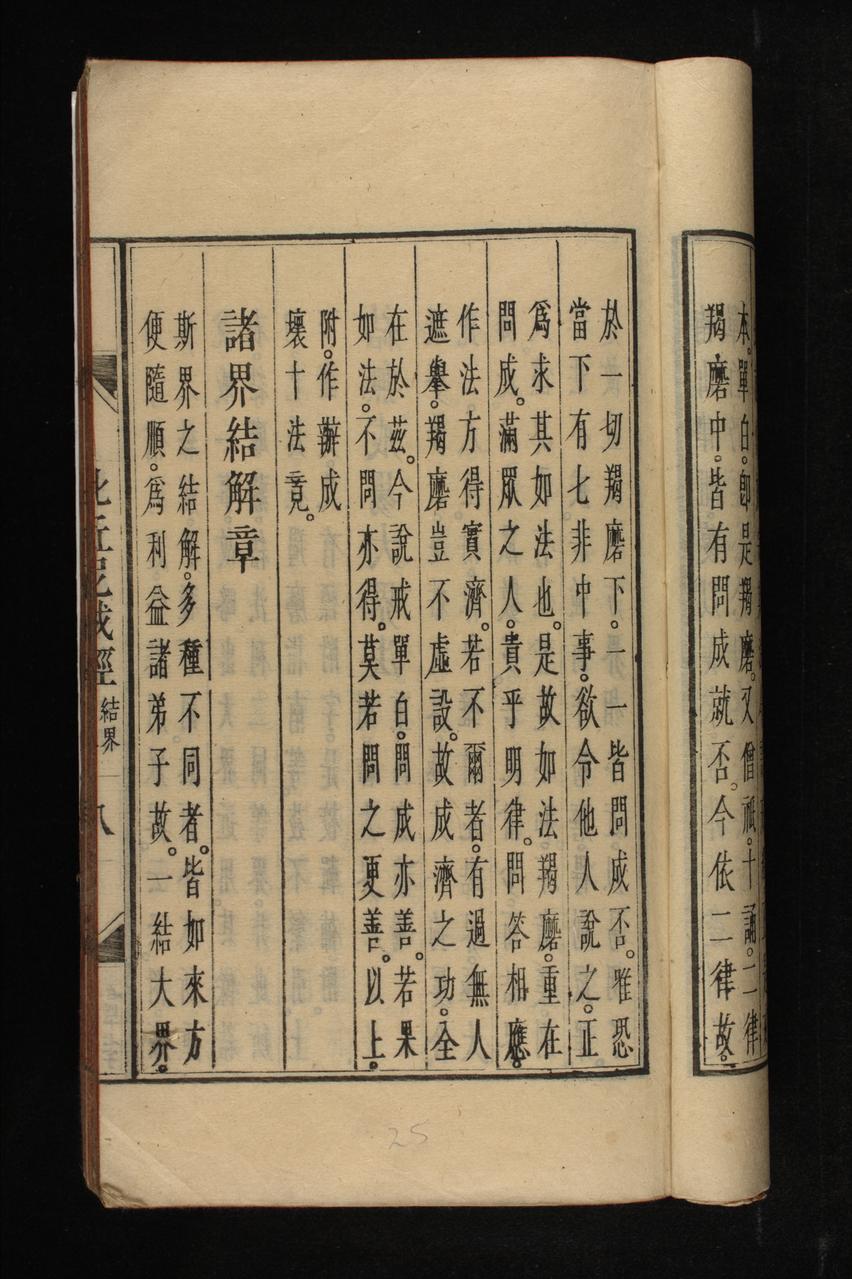 本。單白。即是羯磨。又僧祇。十誦。二律
羯磨中。皆有問成就否。今依二律故。
於一切羯磨下。一一皆問成否。雖恐
當下有七非中事。欲令他人說之。正
爲求其如法也。是故如法羯磨。重在
問成。滿眾之人。貴乎明律。問答相應。
作法方得實濟。若不爾者。有過無人
遮舉。羯磨豈不虛設。故成濟之功。全
在於茲。今說戒單白。問成亦善。若果
如法。不問亦得。莫若問之更善。以上。
附。作辦成
壞十法竟。
諸界結解章
斯界之結解。多種不同者。皆如來方
便隨順。爲利益諸弟子故。一結大界。
比丘尼戒經
結界
八
25